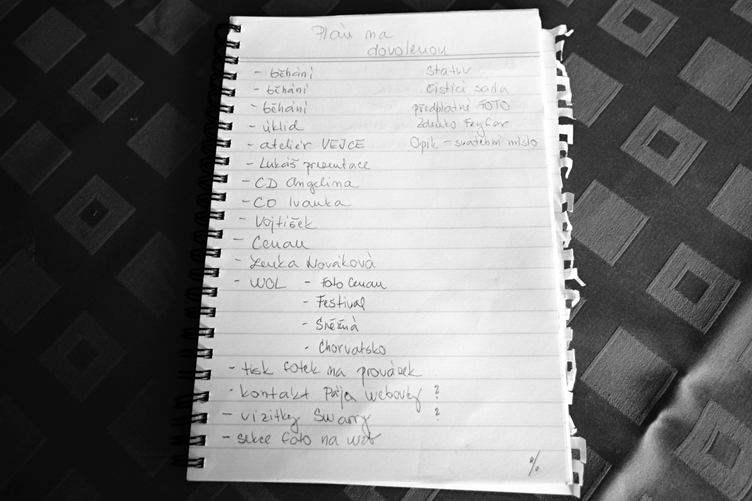 Plán na
dovolenou
- běhání
- běhání
- běhání
- úklid
- ateliér VEJCE
- Lukáš prezentace
- CD Angelina
- CD Ivanka
- Vojtíšek
- Cenau
- Lenka Nováková
- WOL - Foto Cenau
- Festival
- Sněžná
- Chorvatsko
- tisk fotek na provázek
- kontakt Pája webovky ?
- vizitky Swarry ?
- sekce foto na wol
Stativ
čistící sada
předplatné FOTO
Zdenko
Opik - svatební místo
%